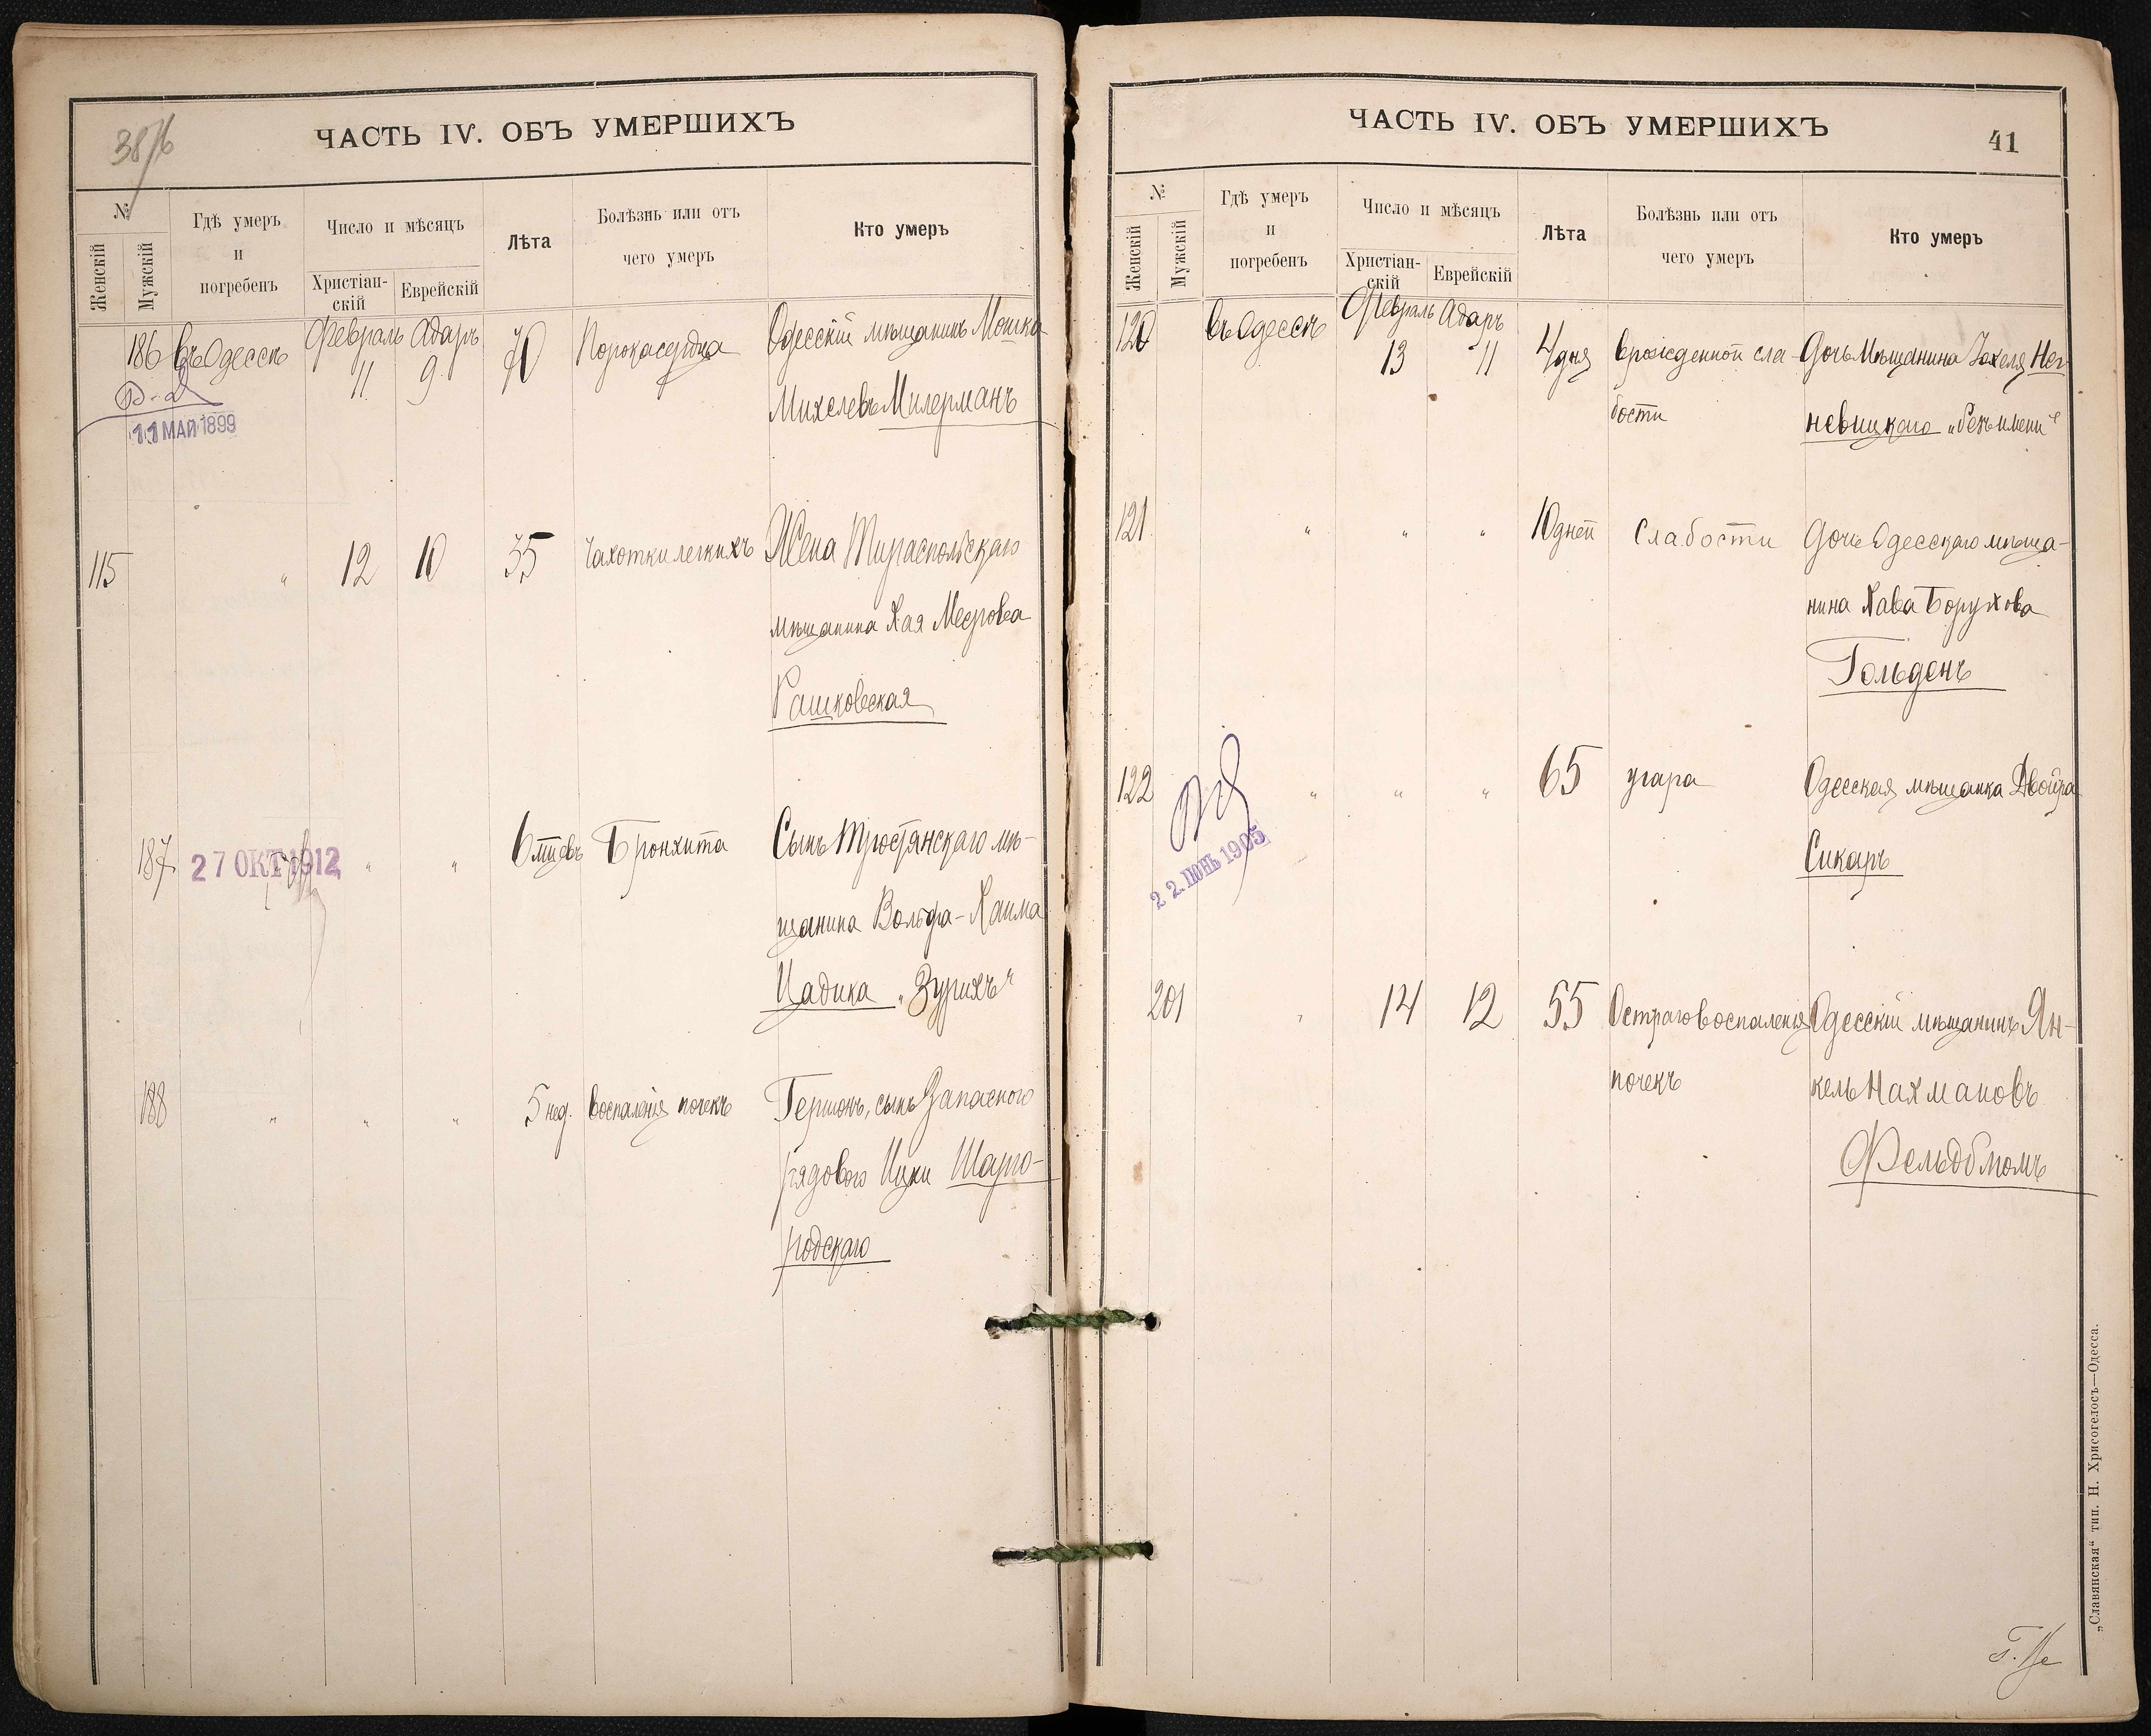 38/6
ЧАСТЬ IV. ОБЪ УМЕРШИХЪ
№
Женскій
Мужскій
Гдѣ умеръ
и
погребенъ
Число и мѣсяцъ
Христіан-
скій
Еврейскій
Лѣта
Болѣзнь или отъ
чего умеръ
Кто умеръ
186 въ Одессѣ Февраль Адаръ 70 Порока сердца Одесскій мѣщанинъ Мошка
11 9
Михелевъ Милерманъ
11 МАЙ 1899
115 " 12 10 35 Чахотки легкихъ Жена Тираспольскаго
мѣщанина Хая Меерова
Рашковская
187 27 ОКТ 1912 " " 6 мцевъ Бронхита Сынъ Тростянскаго мѣ-
щанина Вольфа-Хаима
Цадика „Зурихъ“
188 " " " 5 нед. Воспаленія почекъ Гершонъ, сынъ Запасного
рядового Ицки Шарго-
родскаго
ЧАСТЬ IV. ОБЪ УМЕРШИХЪ
41
№
Женскій
Мужскій
Гдѣ умеръ
и
погребенъ
Число и мѣсяцъ
Христіан-
скій
Еврейскій
Лѣта
Болѣзнь или отъ
чего умеръ
Кто умеръ
120 въ Одессѣ Февраль Адаръ
13 11 4 дня врожденной сла- Дочь Мѣщанина
бости невицкаго „безъ имени“
121 " " " 10 дней Слабости Дочь Одесскаго мѣща-
нина Хава Борухова
Гольденъ
122 " " " 65 угара Одесская мѣщанка Двойра
Сикаръ
22. ІЮНЬ 1905
201 " 14 12 55 Остраго воспаленія Одесскій мѣщанинъ Ян-
почекъ кель Нахмановъ
Фельдблюмъ
„Славянская“ тип. Н. Хрисогелосъ—Одесса.